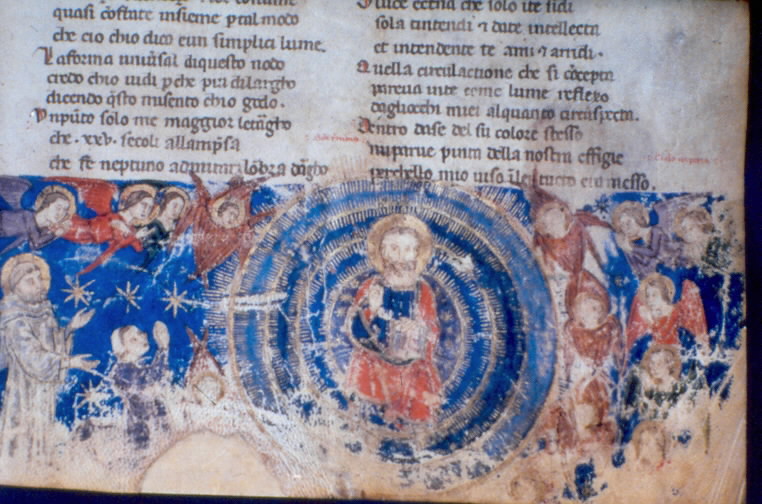 quasi cōflate insieme p tal modo
che cio chio dico e un simplici lume.
La forma uniūsal di questo nodo
credo chio uidi p che piu di largho
dicendo q̄sto mi sento chio godo.
Unpūto solo me maggior letargho
che .xxv. secoli allampsa
che fe neptuno admirar lōbra dargho
O luce et̄na che solo in te sidi
sola tintendi ⁊ da te intellecta
et intendente te ami ⁊ arridi.
Quella circulatione che si cōcepta
pareua in te come lume reflexo
dagliocchi miei alquanto circūspecta.
Dentro dase del su colore stesso
mi parue pinta della nostra effigie
perchello mio uiso īlei tucto era messo.